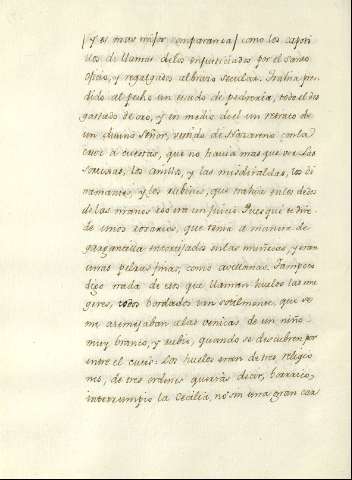 /y es mas mejor comparanza/ como los capoti
llos de llamas de los enjusticiados por el santo
oficio, y regalgados al brazo secular. Trahia pen
dido al pecho un escudo de pedreria, todo el des
gastado de oro, y en medio de el un retrato de
un divino Señor, vestido de Nazareno con la
cruz a cuestas, que no havia mas que ver. Las
sortixas, los anillos, y las missiraldas, los di
amantes, y los rubines, que trahia en los dedos
de las manos eso era un juicio. Pues que te dire
de unos rosarios, que tenia a manera de
gargantilla entortijados en las muñecas, y eran
unas perlas finas, como avellanas. Tampoco
digo nada de esos que llaman huelos las mu
geres, todos bordados tan sotilmente, que se
me asemejaban a las venicas de un niño
muy branco, y rubio, quando se descubren por
entre el cuero. Los huelos eran de tres religio
nes, de tres ordenes querrás decir, borrico,
interrumpio la Cecilia, no sin una gran car